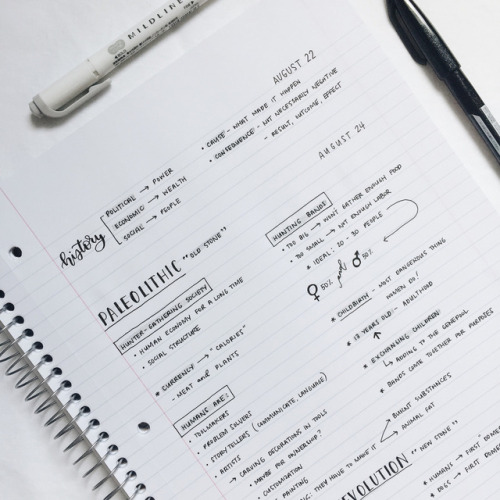 MILDLINER
AUGUST 22
• CAUSE - WHAT MADE IT HAPPEN
• CONSEQUENCE - NOT NECESSARILY NEGATIVE
- RESULT, OUTCOME, EFFECT
AUGUST 24
history
POLITICAL → POWER
ECONOMIC → WEALTH
SOCIAL → PEOPLE
PALEOLITHIC "OLD STONE"
HUNTER-GATHERING SOCIETY
• HUMAN ECONOMY FOR A LONG TIME
• SOCIAL STRUCTURE
* CURRENCY → "CALORIES"
- MEAT and PLANTS
HUMANS ARE:
• TOOLMAKERS
PROBLEM SOLVERS
STORYTELLERS (COMMUNICATE, LANGUAGE)
ARTISTS
→ CARVING DECORATIONS IN TOOLS
• MAYBE FOR OWNERSHIP?
• CUSTOMIZATION
PAINTING
THEY HAVE TO MAKE IT
BINDING SUBSTANCES
ANIMAL FAT
HUNTING BANDS
• TOO BIG → WON'T GATHER ENOUGH FOOD
• TOO SMALL → NOT ENOUGH LABOR
* IDEAL: 20 - 30 PEOPLE
♀ 50% and ♂ 50%
* CHILDBIRTH - MOST DANGEROUS THING
WOMEN DO!
* 13 YEARS OLD - ADULTHOOD
↑
* EXCHANGING CHILDREN:
↳ ADDING TO THE GENEPOOL
• BANDS COME TOGETHER FOR
EVOLUTION "NEW STONE"
• HUMANS' FIRST